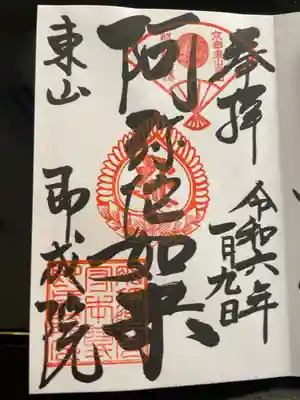 奉拝
令和六年
一月九日
阿弥陀如来
東山
即成院